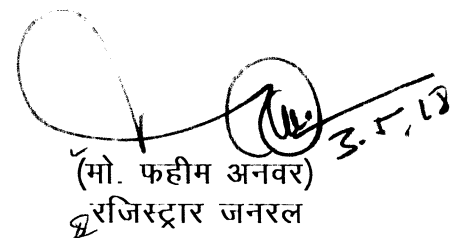 3.5.18
(मो. फहीम अनवर)
रजिस्ट्रार जनरल